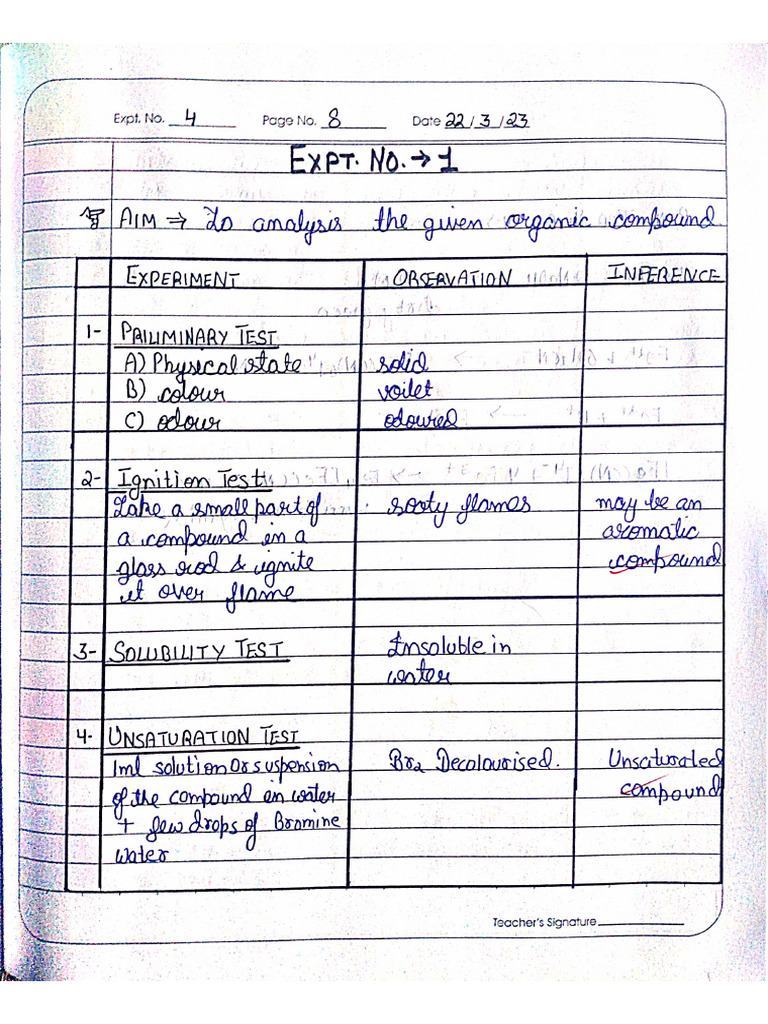 Expt. No. 4 Page No. 8 Date 22/3/23
EXPT. NO. → 1
AIM ⇒ To analysis the given organic compound
EXPERIMENT OBSERVATION INFERENCE
1- PRILIMINARY TEST
A) Physical state solid
B) colour voilet
C) odour odoured
2- Ignition Test:
Take a small part of sooty flames may be an
a compound in a aromatic
glass rod & ignite compound
it over flame
3- SOLUBILITY TEST Insoluble in
water
4- UNSATURATION TEST
1ml solution or suspension Br2 Decolourised. Unsaturated
of the compound in water compound
+ few drops of Bromine
water
Teacher's Signature